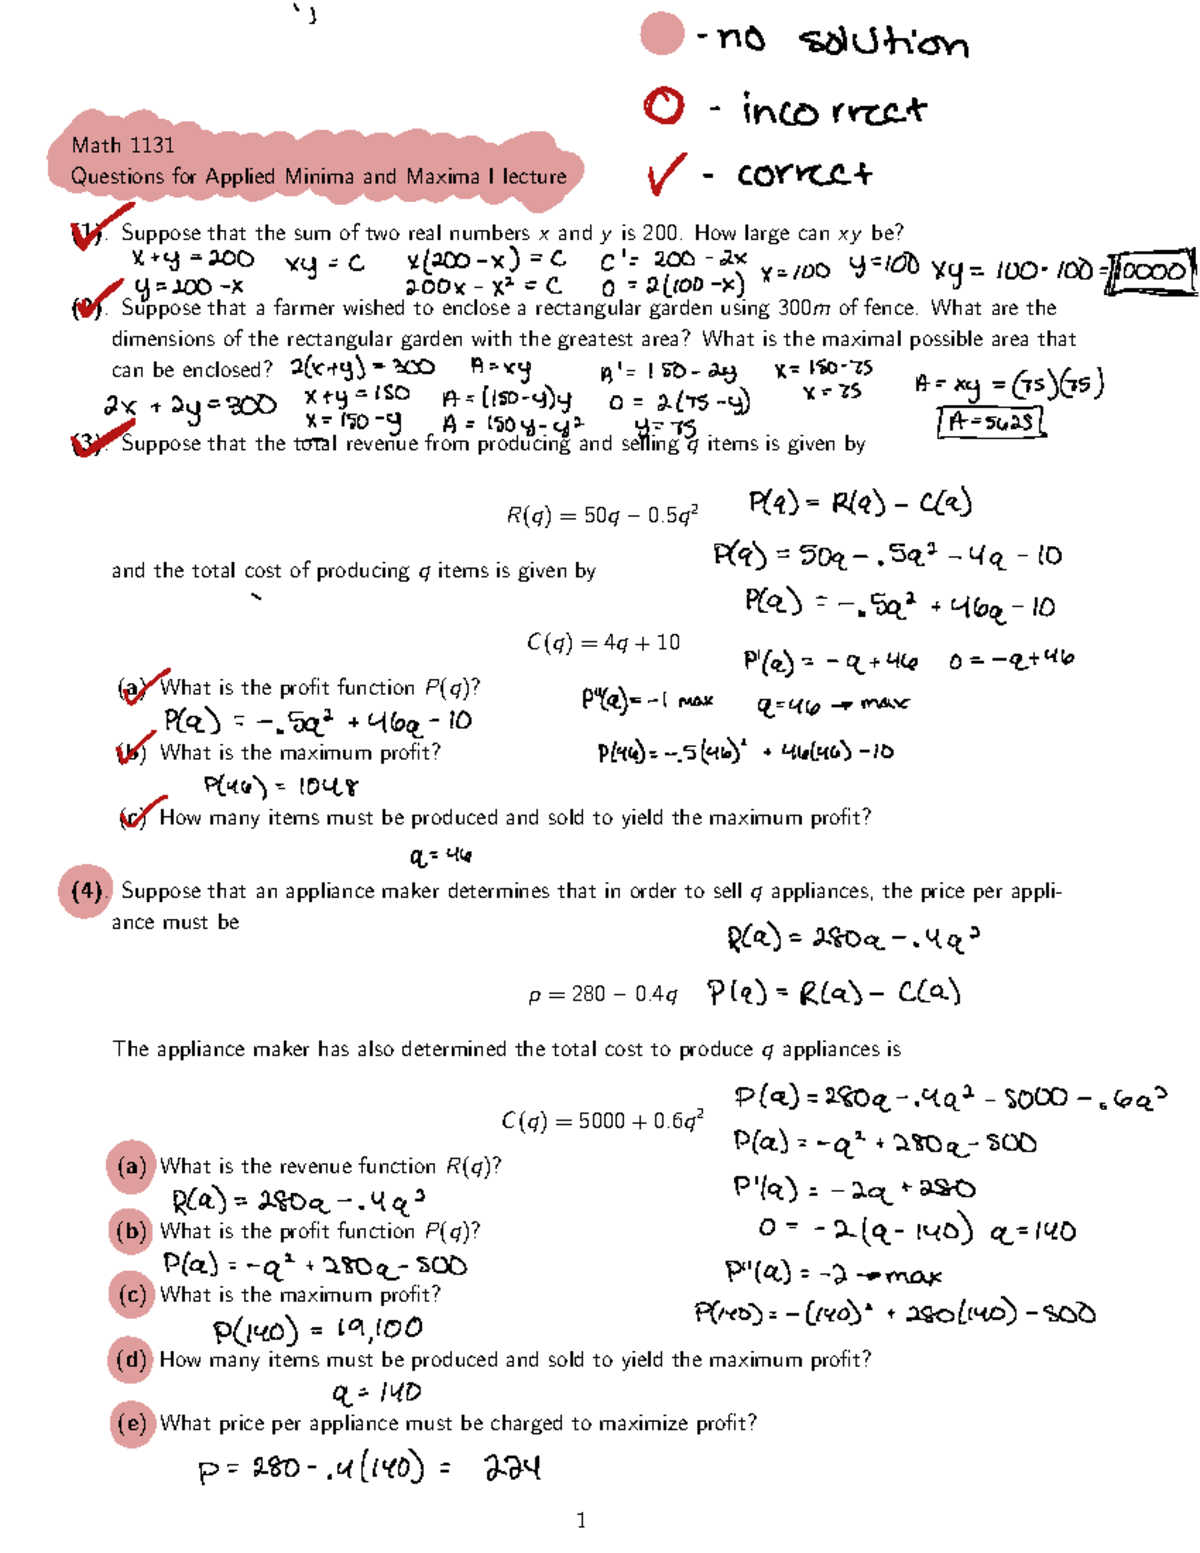 - no solution
- incorrect
- correct
Math 1131
Questions for Applied Minima and Maxima I lecture
(1). Suppose that the sum of two real numbers x and y is 200. How large can xy be?
x+y=200 xy = C x(200-x) = C C' = 200 - 2x x=100 y=100 xy = 100·100 = 10000
y=200-x 200x - x² = C 0 = 2(100-x)
(2). Suppose that a farmer wished to enclose a rectangular garden using 300m of fence. What are the
dimensions of the rectangular garden with the greatest area? What is the maximal possible area that
can be enclosed? 2(x+y) = 300 A=xy A' = 150 - 2y x = 150-75 A = xy = (75)(75)
2x + 2y = 300 x+y = 150 A = (150-y)y 0 = 2(75-y) x = 75
x = 150-y A = 150y-y² y=75 A=5625
(3). Suppose that the total revenue from producing and selling q items is given by
R(q) = 50q − 0.5q² P(q) = R(q) - C(q)
P(q) = 50q - .5q² - 4q - 10
and the total cost of producing q items is given by
P(q) = -.5q² + 46q - 10
C(q) = 4q + 10
P'(q) = -q + 46 0 = -q+46
(a) What is the profit function P(q)? P''(q) = -1 max q=46 → max
P(q) = -.5q² + 46q - 10
(b) What is the maximum profit? P(46) = -.5(46)² + 46(46) - 10
P(46) = 1048
(c) How many items must be produced and sold to yield the maximum profit?
q = 46
(4). Suppose that an appliance maker determines that in order to sell q appliances, the price per appli-
ance must be
R(q) = 280q - .4q²
p = 280 − 0.4q P(q) = R(q) - C(q)
The appliance maker has also determined the total cost to produce q appliances is
P(q) = 280q - .4q² - 5000 - .6q²
C(q) = 5000 + 0.6q²
P(q) = -q² + 280q - 500
(a) What is the revenue function R(q)?
P'(q) = -2q + 280
R(q) = 280q - .4q²
(b) What is the profit function P(q)? 0 = -2(q-140) q=140
P(q) = -q² + 280q - 500 P''(q) = -2 → max
(c) What is the maximum profit?
P(140) = -(140)² + 280(140) - 500
P(140) = 19,100
(d) How many items must be produced and sold to yield the maximum profit?
q = 140
(e) What price per appliance must be charged to maximize profit?
p = 280 - .4(140) = 224
1